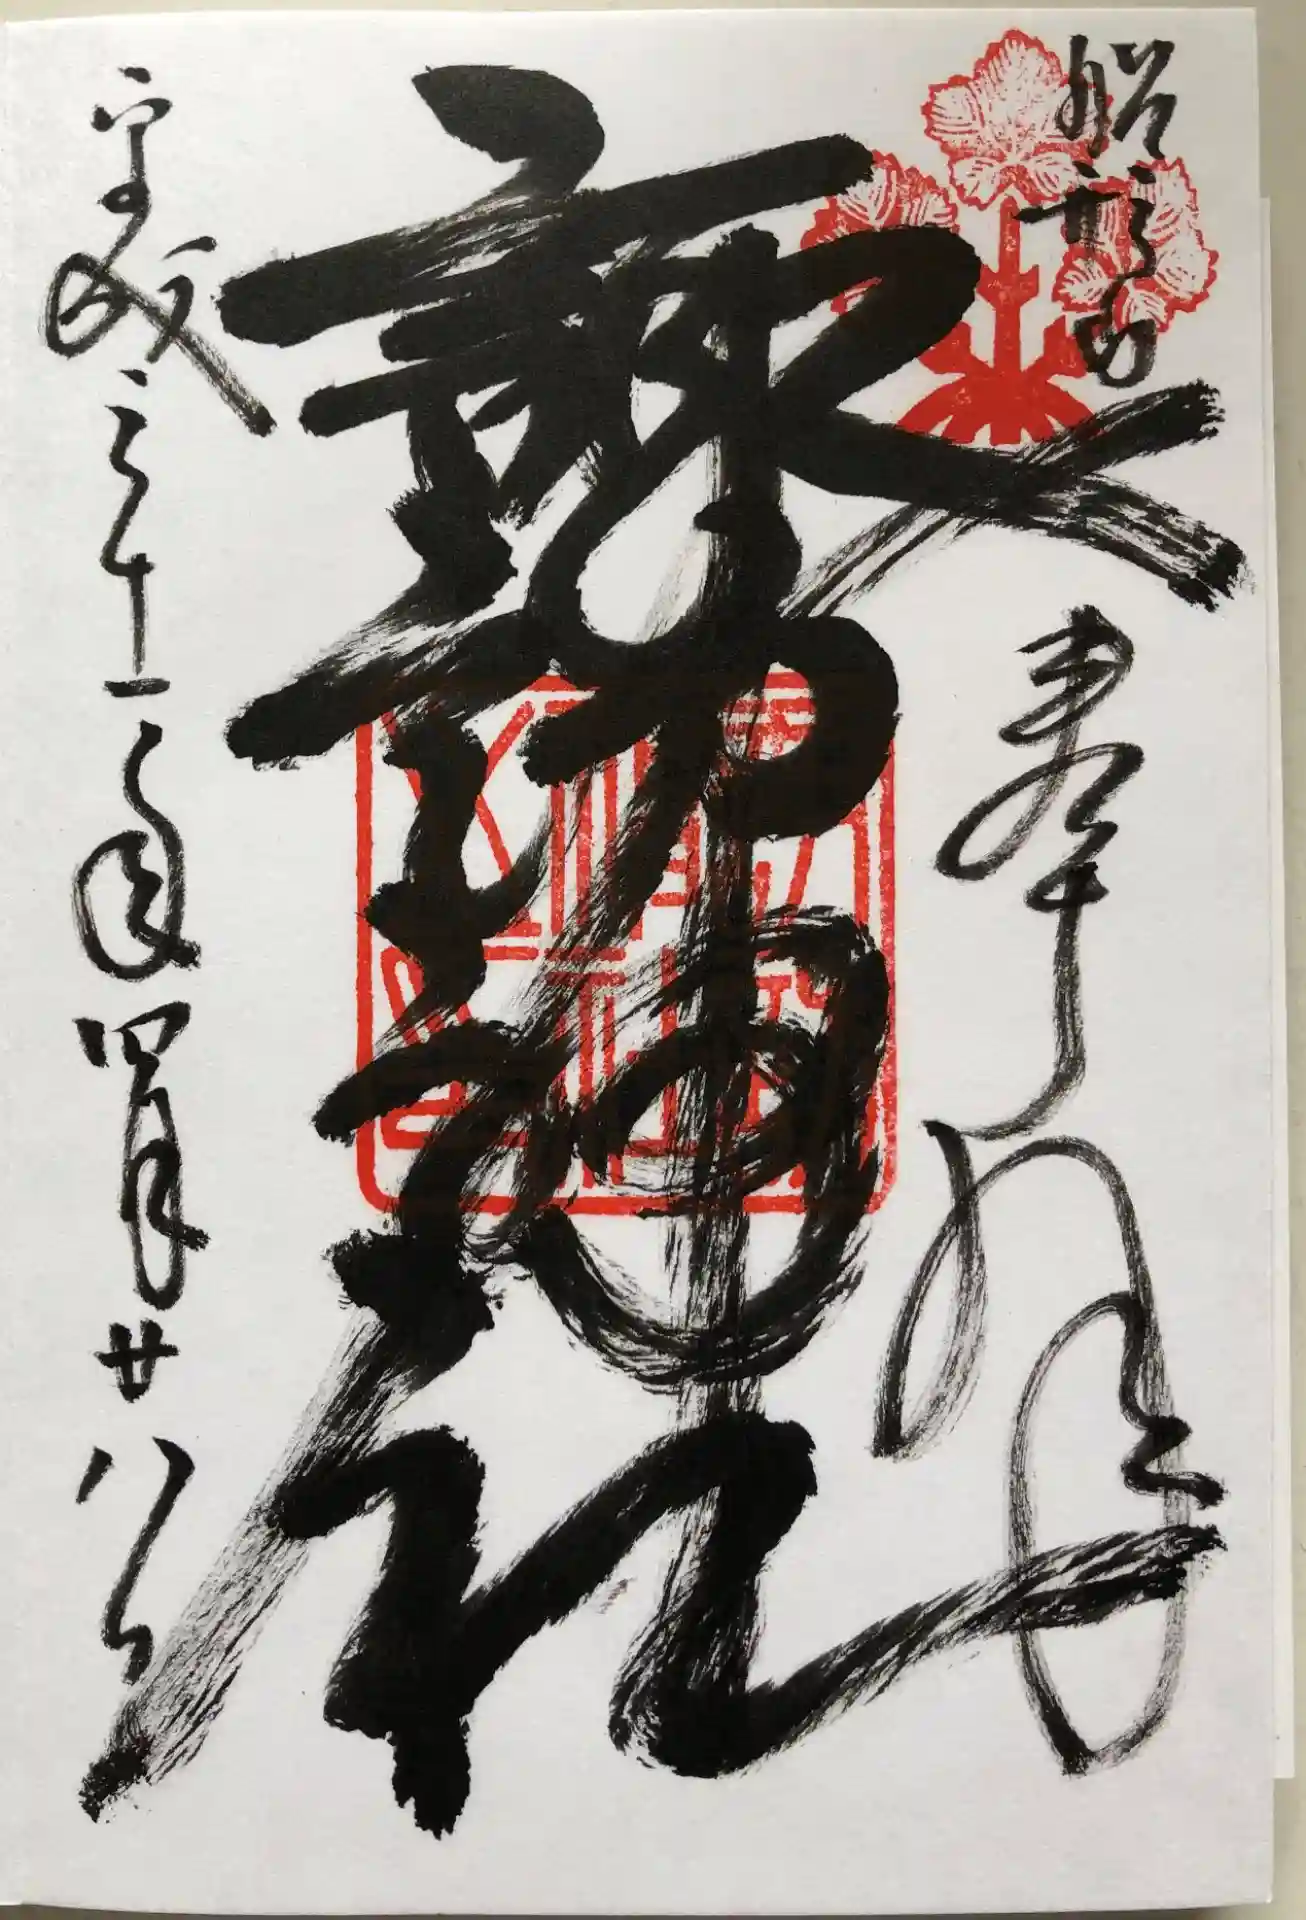 奉拝
諏訪神社
平成三十一年四月廿八日